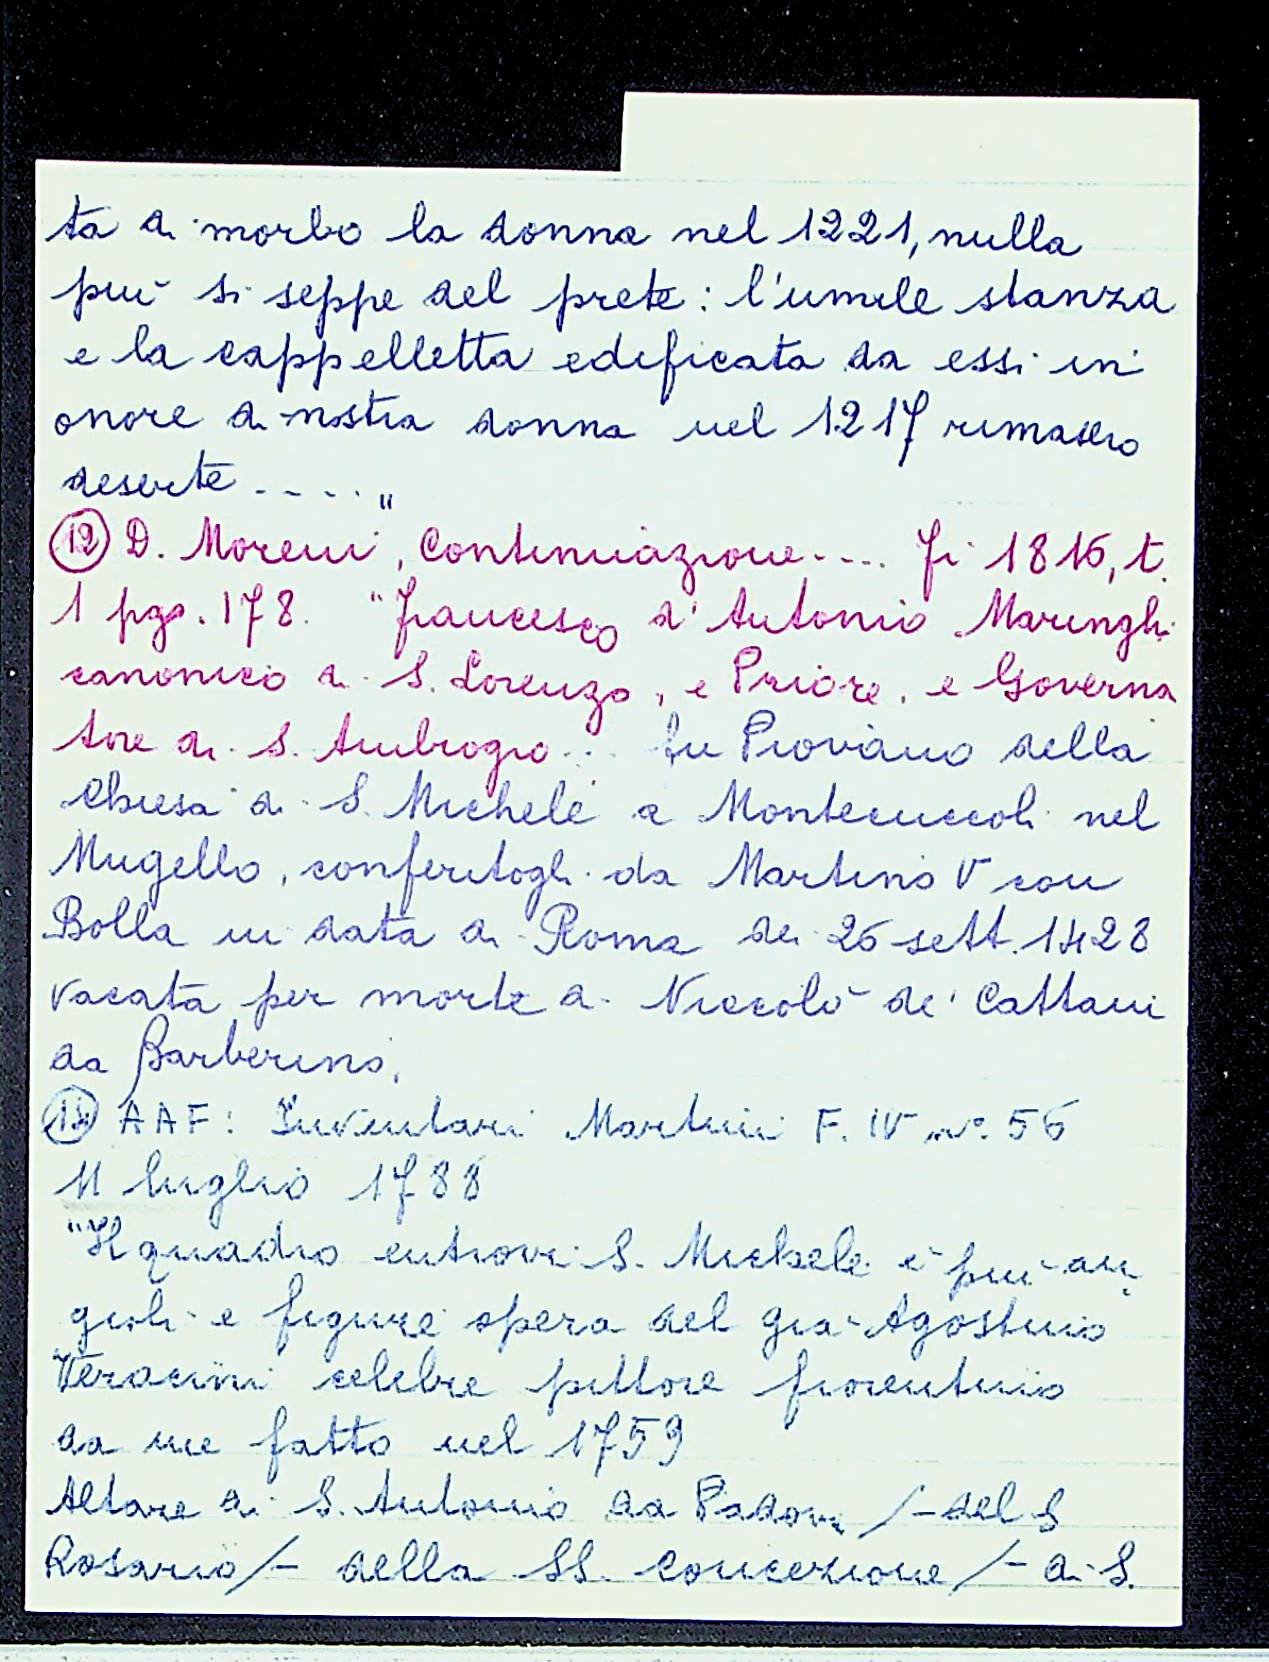 ta di morbo la donna nel 1221, nulla
più si seppe del prete: l'umile stanza
e la cappelletta edificata da essi in
onore di nostra donna nel 1217 rimasero
deserte ....."
(12) D. Moreni, Continuazione.... Fi 1816, t.
1 pgs. 178. "Francesco d'Antonio Maringhi
canonico di S. Lorenzo, e Priore, e Governa
tore di S. Ambrogio... fu Piovano della
Chiesa di S. Michele a Montecuccoli nel
Mugello, conferitogli da Martino V con
Bolla in data di Roma de 26 sett. 1428
vacata per morte di Niccolò de' Cattani
da Barberino.
AAF: Inventari Martini F. IV n° 56
11 luglio 1788
"Il quadro entrovi S. Michele e più an
gioli e figure opera del già Agostino
Veracini celebre pittore fiorentino
da me fatto nel 1759
Altare di S. Antonio da Padova /- del S
Rosario /- della SS. Concezione /- di S.